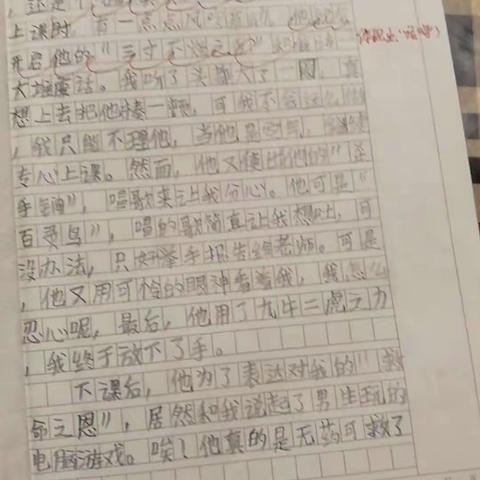 上课时，有一点点风吹草动，他就会
开启他的"三寸不烂之舌"
大堆废话。我听了头都大了一圈，真
想上去把他揍一顿，可我不会这么做
，我只能不理他，当他是空气，
专心上课。然而，他又使出他的"杀
手锏"，唱歌来让我分心。他可是"
百灵鸟"，唱的歌简直让我想吐，可
没办法，只好举手报告给老师。可是
，他又用可怜的眼神看着我，我怎么
忍心呢，最后，他用了九牛二虎之力
，我终于放下了手。
下课后，他为了表达对我的"救
命之恩"，居然和我说起了男生玩的
电脑游戏。唉！他真的是无药可救了